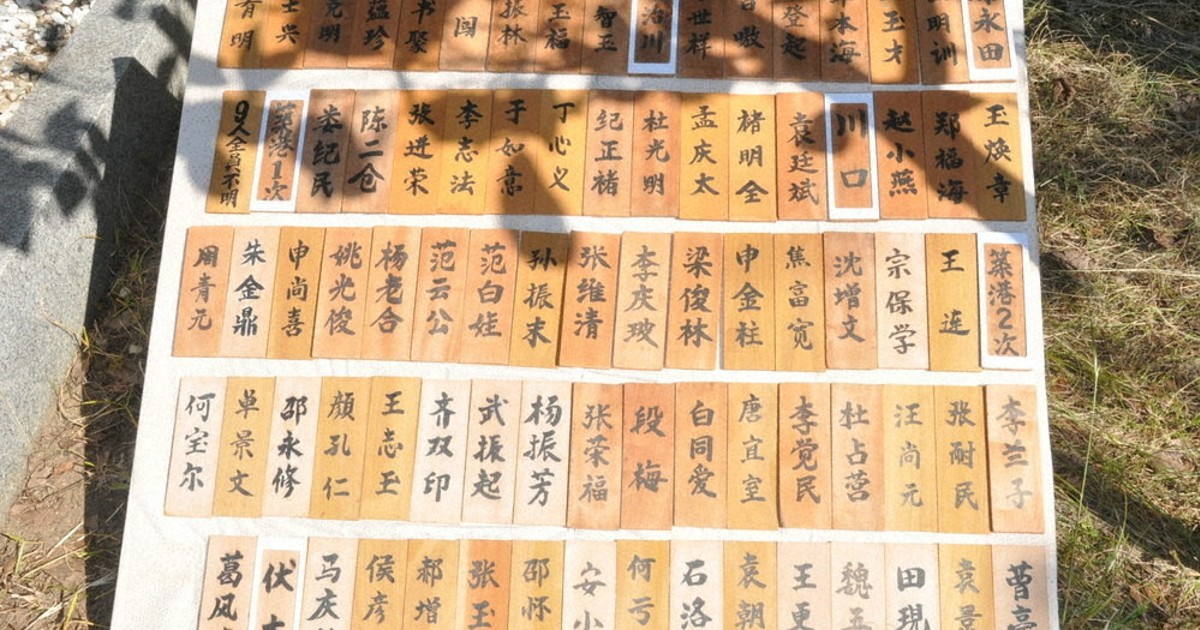 永田
明训
玉才
本海
登起
世样
治川
智玉
玉福
振林
书聚
蕴珍
克明
士兴
育明
王焕章
郑福海
赵小燕
川口
袁廷斌
楮明全
孟庆太
杜光明
纪正褚
丁心义
于如意
李志法
张进荣
陈二仓
娄纪民
築港1次
9人全員不明
築港2次
王连
宗保学
沈增文
焦富宽
申金柱
梁俊林
李庆玻
张维清
孙振末
范白娃
范云公
杨老合
姚光俊
申尚喜
朱金鼎
周青元
李兰子
张耐民
汪尚元
杜占营
李党民
唐宜室
白同爱
段梅
张荣福
杨振芳
武振起
齐双印
王志玉
顔孔仁
邵永修
卓景文
何宝尔
曹
袁景
田現
魏五
王更
袁朝
石洛
何亏
安小
邵怀
张玉
郝增
侯彦
马庆
伏
葛风